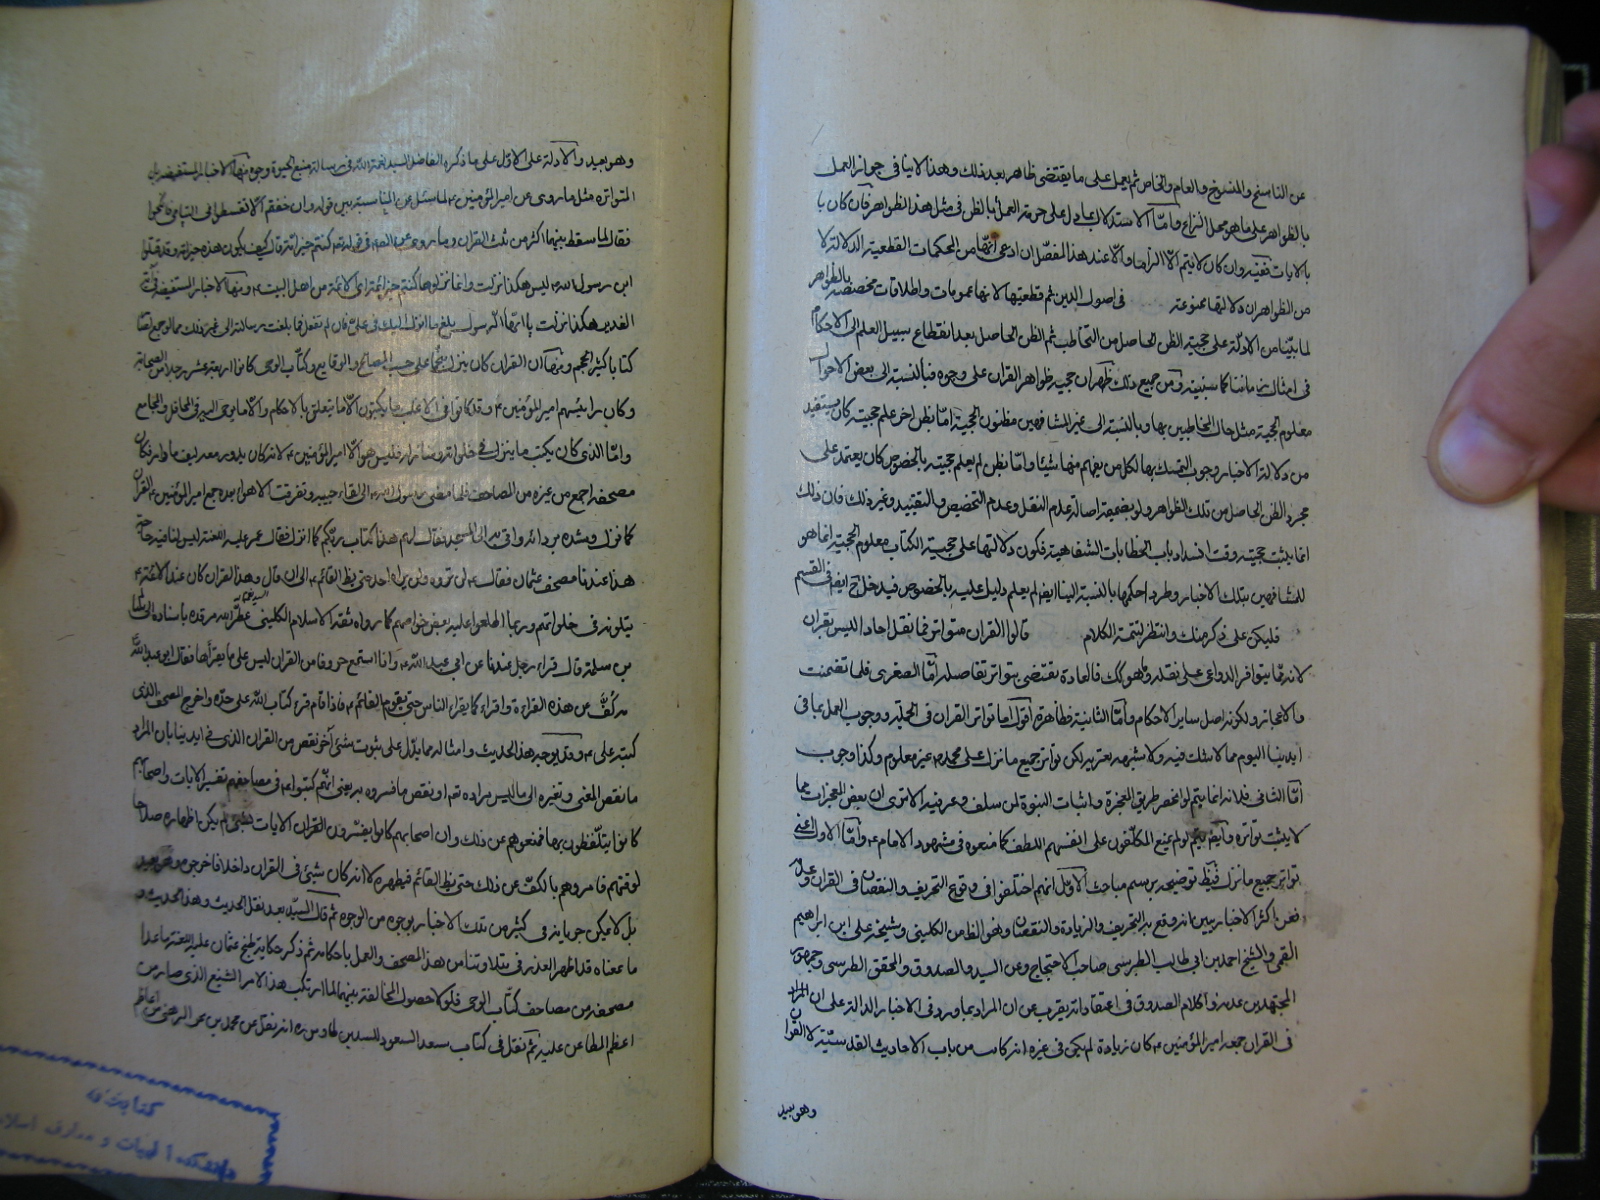 عن الناسخ والمنسوخ والعام والخاص ثم يعمل على ما يقتضى ظاهره بعد ذلك وهذا لا ينافى جواز العمل
بالظواهر على ما هو محل النزاع واما الاستدلال على حرمة العمل بالظن فى مثل هذا الظواهر فان كان
بالايات ففيه وان كان لا يتم الا الزاما والا عند هذا المفصل ان ادعى انها من المحكمات القطعية الدلالة لا
من الظواهر ان دلالتها ممنوعة فى اصول الدين ثم قطعيتها لانها عمومات واطلاقات مخصصة بالظواهر
لما بينا من الادلة على حجية الظن الحاصل من التخاطب ثم الظن الحاصل بعد انقطاع سبيل العلم الى الاحكام
فى امثال زماننا كما سنبينه ومن جميع ذلك ظهر ان حجية ظواهر القران على وجوه فبالنسبة الى بعض الاحوال
معلوم الحجية مثل حال المخاطبين بها وبالنسبة الى غير المشافهين مظنون الحجية اما بظن اخر علم حجيته كان يستفيد
من دلالة الاخبار وجوب التمسك بها لكل من يفهم منها شيئا واما بظن لم يعلم حجيته بالخصوص كان يعتمد على
مجرد الظن الحاصل من تلك الظواهر ولو بضميمة اصالة عدم النقل وعدم التخصيص والتقييد وغير ذلك فان ذلك
انما يثبت حجيته وقت انسداد باب الخطابات الشفاهية فكون دلالتها على حجية الكتاب معلوم الحجية انما هو
للمشافهين بتلك الاخبار وطرد احكمها بالنسبة الينا ايضا لم يعلم دليل عليه بالخصوص فيدخل ايضا فى القسم
فليكن على ذكر منك وانتظر لتتمة الكلام قالوا القران متواتر فما نقل احادا ليس بقران
لانه مما يتوافر الدواعى على نقله وما هو كك فالعادة تقتضى بتواتر تفاصيله اما الصغرى فلما تضمنت
والاعجاز ولكونه اصل ساير الاحكام واما الثانية فظاهرة اقول اما تواتر القران فى الجملة ووجوب العمل بما فى
ايدينا اليوم مما لا شك فيه ولا شبهة يعتريه لكن تواتر جميع ما نزل على محمد غير معلوم وكذا وجوب
اما الثانى فلانه انما يتم لو انحصر طريق المعجزة واثبات النبوة لمن سلف وغبر فيه الا ترى ان بعض المعجزات مما
لا يثبت تواتره وايضا يتم لو لم يمنع المكلفون على انفسهم اللطف كما منعوه فى شهود الامام واما الاول اعنى
تواتر جميع ما نزل فيظ توضيحه برسم مباحث الاول انهم اختلفوا فى وقوع التحريف والنقصان فى القران وعدمه
فعن اكثر الاخباريين انه وقع فيه التحريف والزيادة والنقصان وهو الظ من الكلينى وشيخه على ابن ابراهيم
القمى والشيخ احمد بن ابى طالب الطبرسى صاحب الاحتجاج وعن السيد والصدوق والمحقق الطبرسى وجمهور
المجتهدين عدمه وكلام الصدوق فى اعتقاداته يقرب عن ان المراد بما ورد فى الاخبار الدالة على ان
فى القران جمعه امير المؤمنين كان زيادة لم يكن فى غيره انه كانت من باب الاحاديث القدسية لا القران
وهو بعيد
وهو بعيد والادلة على الاول على ما ذكره الفاضل السيد نعمة الله فى رسالته منبع الحيوة وجوه منها الاخبار المستفيضة بل
المتواترة مثل ما روى عن امير المؤمنين لما سئل عن المناسبة بين قوله وان خفتم الا تقسطوا فى اليتامى فانكحوا
فقال لما سقط بينهما اكثر من ثلث القران وما روى عن الصم فى قوله تم كنتم خير امة قال كيف يكون هذه خير امة وقد قتلوا
ابن رسول الله ليس هكذا نزلت وانما نزولها كنتم خير ائمة اى الائمة من اهل البيت ومنها الاخبار المستفيضة فى آية
الغدير هكذا نزلت يا ايها الرسول بلغ ما انزل اليك فى على فان لم تفعل فما بلغت رسالته الى غير ذلك مما لو جمع لصار
كتابا كثير الحجم ومنها ان القران كان ينزل منجما على حسب المصالح والوقايع وكتاب الوحى كانوا اربعة عشر رجلا من الصحابة
وكان رئيسهم امير المؤمنين وقد كانوا فى الاغلب ما يكتبون الا ما يتعلق بالاحكام والا ما يوحى اليه فى المحافل والمجامع
واما الذى كان يكتب ما ينزل فى خلواته ومنازله فليس هو الا امير المؤمنين لانه كان يدور معه كيف ما دار فكان
مصحفه اجمع من غيره من المصاحف فلما مضى رسول الله الى لقاء حبيبه وتفرقت الاهواء بعده جمع امير المؤمنين القران
كما نزل وشده بردائه واتى به الى المسجد فقال لهم هذا كتاب ربكم كما انزل فقال عمر عليه اللعنة ليس لنا فيه حاجة
هذا عندنا مصحف عثمان فقال لن تروه ولن يراه احد حتى يظهر القائم الى ان قال وهذا القران كان عند الائمة
يتلونه فى خلواتهم وربما اطلعوا عليه بعض خواصهم كما رواه ثقة الاسلام الكلينى عطر الله مرقده باسناده الى سالم
بن سلمة قال قراء رجل عندنا عن ابى عبد الله وانا استمع حروفا من القران ليس على ما يقرأها فقال ابو عبد الله
مه كف من هذه القراءة واقراء كما يقراء الناس حتى يقوم القائم فاذا قام قرء كتاب الله على حده واخرج المصحف الذى
كتبه على وقد يوجه هذا الحديث وامثاله مما يدل على ثبوت شئ آخر نقص من القران الذى فى ايدينا بان المراد
ما نقص المعنى وتغيره الى ما ليس مراده تم او نقص ما فسروه به يعنى انهم كتبوا فى مصاحفهم تفسير الايات واصحابهم
كانوا يتلفظون بها فمنعوهم عن ذلك وان اصحابهم كانوا يفسرون القران الايات لم يكن اظهاره صلاحا
لوقتهم فامروهم بالكف عن ذلك حتى يظ القائم فيظهره لا انه كان شئ فى القران داخلا فاخرجوه وهو بعيد
بل لا يمكن جريانه فى كثير من تلك الاخبار بوجه من الوجوه ثم قال السيد بعد نقل الحديث وهذا الحديث و
ما بمعناه قد اظهر العذر فى تلاوتنا من هذا المصحف والعمل باحكامه ثم ذكر حكاية طبخ عثمان عليه اللعنة ما عدا
مصحفه من مصاحف كتاب الوحى فلولا حصول المخالفة بينهما لما ارتكب هذا الامر الشنيع الذى صار من
اعظم المطاعن عليه ثم نقل فى كتاب سعد السعود للسيد بن طاوس ره انه نقل عن محمد بن بحر الرهنى من اعاظم
كتابخانه
دانشکده الهیات و معارف اسلامی